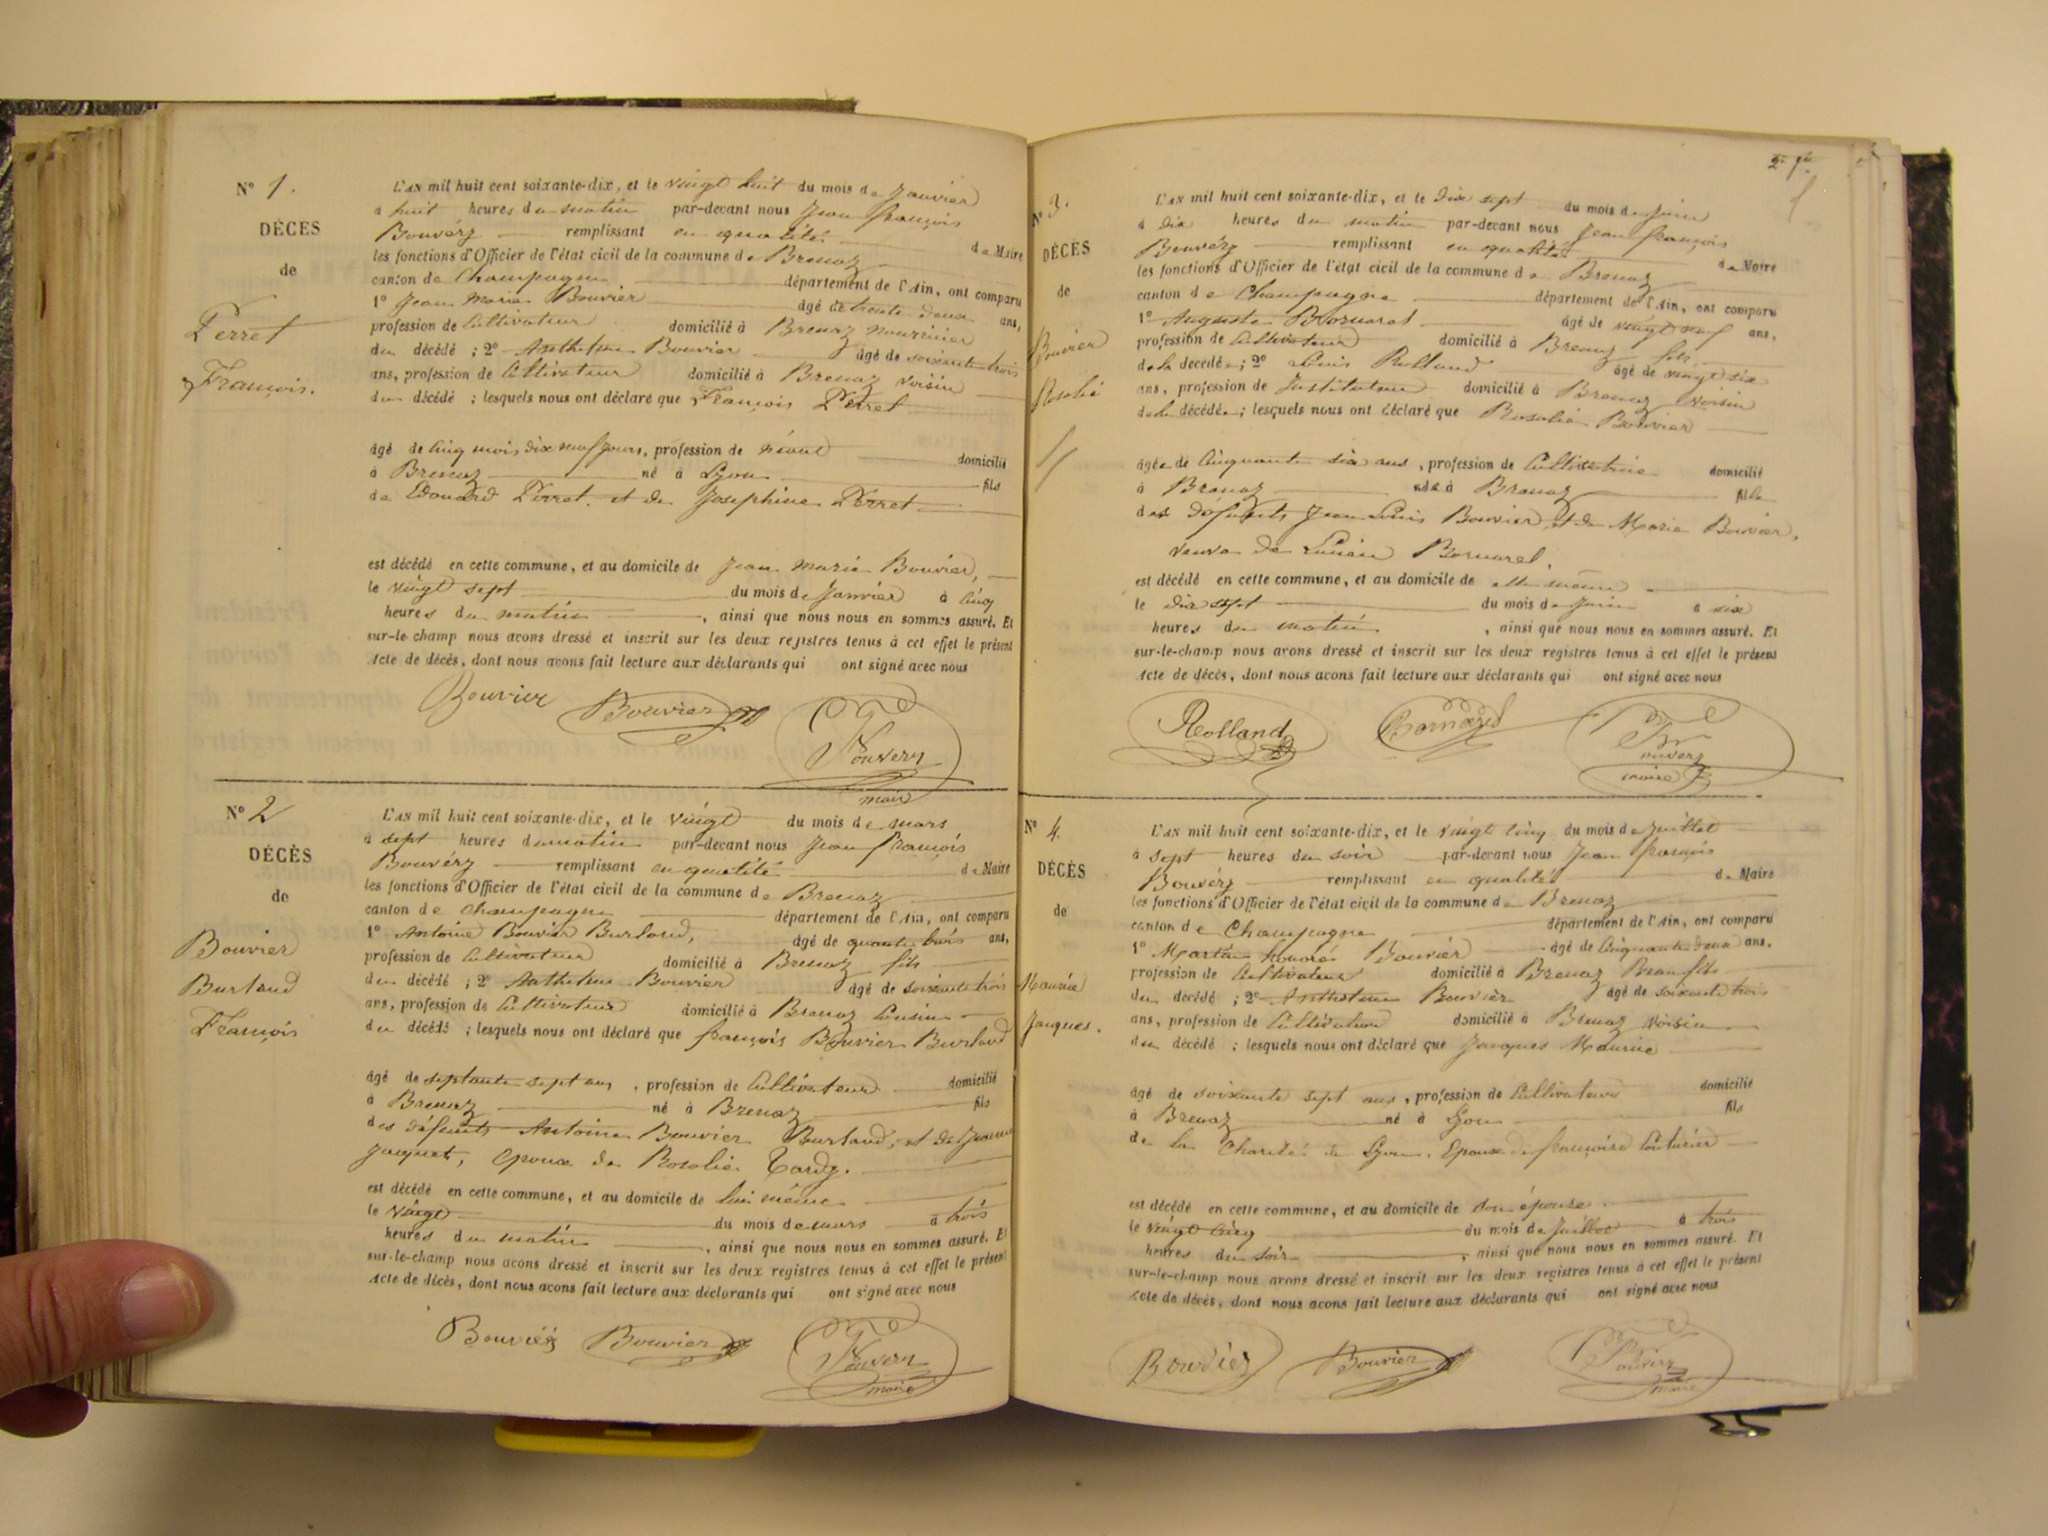 N° 1.
DÉCÈS
de
Perret
François.
L'AN mil huit cent soixante-dix, et le vingt huit du mois de Janvier
à huit heures du matin par-devant nous Jean françois
Bouvéry remplissant en qualité de Maire
les fonctions d'Officier de l'état civil de la commune de Brenaz
canton de Champagne département de l'Ain, ont comparu
1° Jean Marie Bouvier âgé de trente deux ans,
profession de Cultivateur domicilié à Brenaz nourricier
du décédé ; 2° Anthelme Bouvier âgé de soixante trois
ans, profession de Cultivateur domicilié à Brenaz voisin
du décédé ; lesquels nous ont déclaré que François Perret
âgé de cinq mois dix neuf jours, profession de néant domicilié
à Brenaz né à Lyon fils
de Edouard Perret et de Josephine Perret
est décédé en cette commune, et au domicile de Jean Marie Bouvier,
le vingt sept du mois de Janvier à cinq
heures du matin , ainsi que nous nous en sommes assuré. Et
sur-le-champ nous avons dressé et inscrit sur les deux registres tenus à cet effet le présent
Acte de décès, dont nous avons fait lecture aux déclarants qui ont signé avec nous
Bouvier Bouvier Bouvery
maire
N° 2
DÉCÈS
de
Bouvier
Burlaud
François
L'AN mil huit cent soixante-dix, et le vingt du mois de mars
à sept heures du matin par-devant nous Jean François
Bouvéry remplissant en qualité de Maire
les fonctions d'Officier de l'état civil de la commune de Brenaz
canton de Champagne département de l'Ain, ont comparu
1° Antoine Bouvier Burlaud, âgé de quarante trois ans,
profession de Cultivateur domicilié à Brenaz fils
du décédé ; 2° Anthelme Bouvier âgé de soixante trois
ans, profession de Cultivateur domicilié à Brenaz Cousin
du décédé ; lesquels nous ont déclaré que françois Bouvier Burlaud
âgé de septante sept ans , profession de Cultivateur domicilié
à Brenaz né à Brenaz fils
des défunts Antoine Bouvier Burlaud, et de Jeanne
Jaquet, époux de Rosalie Tardy.
est décédé en cette commune, et au domicile de lui même
le vingt du mois de mars à trois
heures du matin , ainsi que nous nous en sommes assuré. Et
sur-le-champ nous avons dressé et inscrit sur les deux registres tenus à cet effet le présent
Acte de décès, dont nous avons fait lecture aux déclarants qui ont signé avec nous
Bouvier Bouvier Bouvery
maire
N° 3.
DÉCÈS
de
Bouvier
Rosalie
L'AN mil huit cent soixante-dix, et le dix sept du mois de Juin
à dix heures du matin par-devant nous Jean françois
Bouvéry remplissant en qualité de Maire
les fonctions d'Officier de l'état civil de la commune de Brenaz
canton de Champagne département de l'Ain, ont comparu
1° Auguste Bornarel âgé de vingt neuf ans,
profession de Cultivateur domicilié à Brenaz fils
de la décédée ; 2° Louis Rolland âgé de vingt six
ans, profession de Instituteur domicilié à Brenaz voisin
de la décédée ; lesquels nous ont déclaré que Rosalie Bouvier
âgée de Cinquante six ans , profession de Cultivatrice domicilié
à Brenaz née à Brenaz fille
des défunts Jean Louis Bouvier, et de Marie Bouvier,
veuve de Lucien Bornarel.
est décédé en cette commune, et au domicile de elle même
le dix sept du mois de Juin à six
heures du matin , ainsi que nous nous en sommes assuré. Et
sur-le-champ nous avons dressé et inscrit sur les deux registres tenus à cet effet le présent
Acte de décès, dont nous avons fait lecture aux déclarants qui ont signé avec nous
Rolland Bouvery
maire
N° 4.
DÉCÈS
de
Maurice
Jacques.
L'AN mil huit cent soixante-dix, et le vingt cinq du mois de Juillet
à sept heures du soir par-devant nous Jean françois
Bouvéry remplissant en qualité de Maire
les fonctions d'Officier de l'état civil de la commune de Brenaz
canton de Champagne département de l'Ain, ont comparu
1° Martin honoré Bouvier âgé de Cinquante deux ans,
profession de Cultivateur domicilié à Brenaz Beau fils
du décédé ; 2° Anthelme Bouvier âgé de soixante trois
ans, profession de Cultivateur domicilié à Brenaz voisin
du décédé ; lesquels nous ont déclaré que Jacques Maurice
âgé de soixante sept ans , profession de Cultivateur domicilié
à Brenaz né à Lyon fils
de la Charité de Lyon. Epoux de françoise Couturier
est décédé en cette commune, et au domicile de son épouse
le vingt cinq du mois de Juillet à trois
heures du soir , ainsi que nous nous en sommes assuré. Et
sur-le-champ nous avons dressé et inscrit sur les deux registres tenus à cet effet le présent
Acte de décès, dont nous avons fait lecture aux déclarants qui ont signé avec nous
Bouvier Bouvier Bouvery
maire